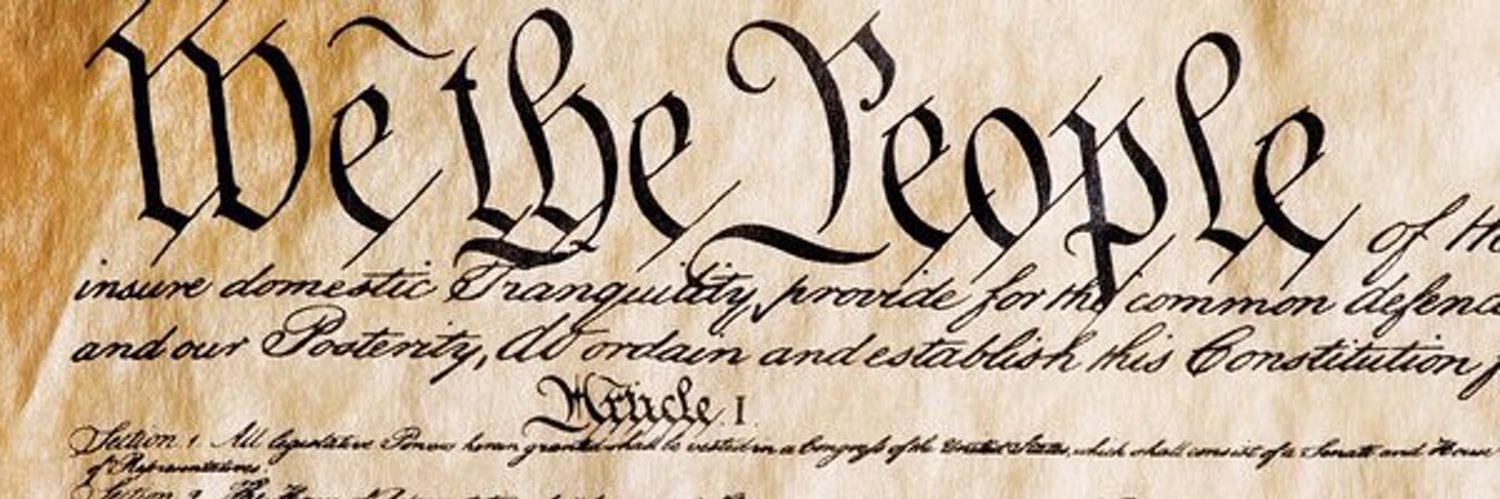 We the People of the
insure domestic Tranquility, provide for the common defence
and our Posterity, do ordain and establish this Constitution f
Article. I.
Section 1. All legislative Powers herein granted shall be vested in a Congress of the United States, which shall consist of a Senate and House
of Representatives.
Section 2. The House of